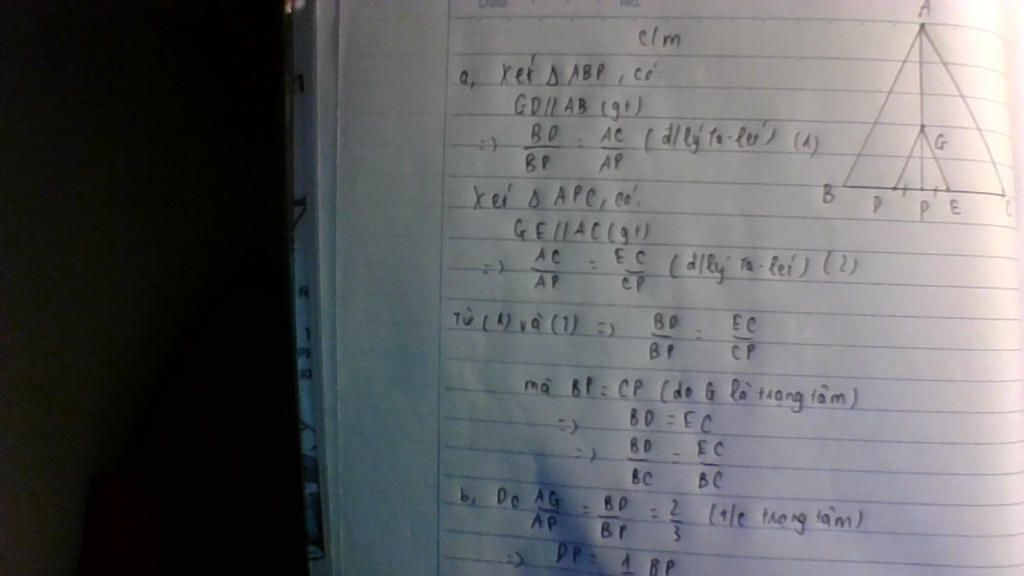 No.
c/m
A
a, Xét Δ ABP, có
GD//AB (gt)
=> BD/BP = AC/AP (đ/lý Ta-lét) (1)
G
B D P E C
Xét Δ APC, có:
GE//AC (gt)
=> AC/AP = EC/CP (đ/lý Ta-lét) (2)
Từ (1) và (2) => BD/BP = EC/CP
mà BP = CP (do G là trọng tâm)
=> BD = EC
=> BD/BC = EC/BC
b, Do AG/AP = BD/BP = 2/3 (t/c trọng tâm)
=> DP = 1 BP